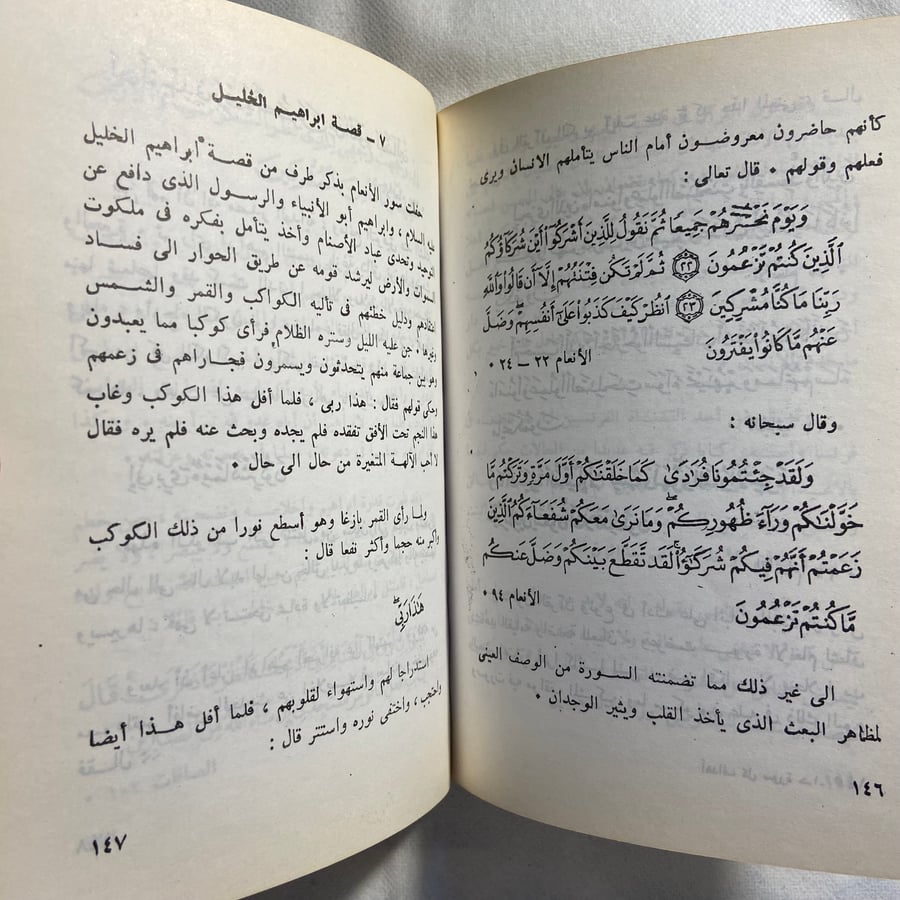 كأنهم حاضرون معروضون أمام الناس يتأملهم الانسان ويرى
فعلهم وقولهم ٠ قال تعالى :
وَيَوْمَ نَحْشُرُهُمْ جَمِيعًا ثُمَّ نَقُولُ لِلَّذِينَ أَشْرَكُوٓا۟ أَيْنَ شُرَكَآؤُكُمُ
ٱلَّذِينَ كُنتُمْ تَزْعُمُونَ ٢٢ ثُمَّ لَمْ تَكُن فِتْنَتُهُمْ إِلَّآ أَن قَالُوا۟ وَٱللَّهِ
رَبِّنَا مَا كُنَّا مُشْرِكِينَ ٢٣ ٱنظُرْ كَيْفَ كَذَبُوا۟ عَلَىٰٓ أَنفُسِهِمْ وَضَلَّ
عَنْهُم مَّا كَانُوا۟ يَفْتَرُونَ الأنعام ٢٢ – ٢٤ ٠
وقال سبحانه :
وَلَقَدْ جِئْتُمُونَا فُرَٰدَىٰ كَمَا خَلَقْنَٰكُمْ أَوَّلَ مَرَّةٍ وَتَرَكْتُم مَّا
خَوَّلْنَٰكُمْ وَرَآءَ ظُهُورِكُمْ وَمَا نَرَىٰ مَعَكُمْ شُفَعَآءَكُمُ ٱلَّذِينَ
زَعَمْتُمْ أَنَّهُمْ فِيكُمْ شُرَكَٰٓؤُا۟ لَقَد تَّقَطَّعَ بَيْنَكُمْ وَضَلَّ عَنكُم
مَّا كُنتُمْ تَزْعُمُونَ الأنعام ٩٤ ٠
الى غير ذلك مما تضمنته السورة من الوصف العينى
لمظاهر البعث الذى يأخذ القلب ويثير الوجدان ٠
١٤٦
٧ – قصة ابراهيم الخليل
حفلت سور الأنعام بذكر طرف من قصة ابراهيم الخليل
عليه السلام ، وابراهيم أبو الأنبياء والرسول الذى دافع عن
التوحيد وتحدى عباد الأصنام وأخذ يتأمل بفكره فى ملكوت
السموات والأرض ليرشد قومه عن طريق الحوار الى فساد
اعتقادهم ودليل خطئهم فى تأليه الكواكب والقمر والشمس
وغيرها ٠ جن عليه الليل وستره الظلام فرأى كوكبا مما يعبدون
وهو بين جماعة منهم يتحدثون ويسمرون فجاراهم فى زعمهم
وحكى قولهم فقال : هذا ربى ، فلما أفل هذا الكوكب وغاب
هذا النجم تحت الأفق تفقده فلم يجده وبحث عنه فلم يره فقال
لا أحب الآلهة المتغيرة من حال الى حال ٠
ولما رأى القمر بازغا وهو أسطع نورا من ذلك الكوكب
وأكبر منه حجما وأكثر نفعا قال :
هَٰذَا رَبِّى
استدراجا لهم واستهواء لقلوبهم ، فلما أفل هذا أيضا
واحتجب ، واختفى نوره واستتر قال :
١٤٧